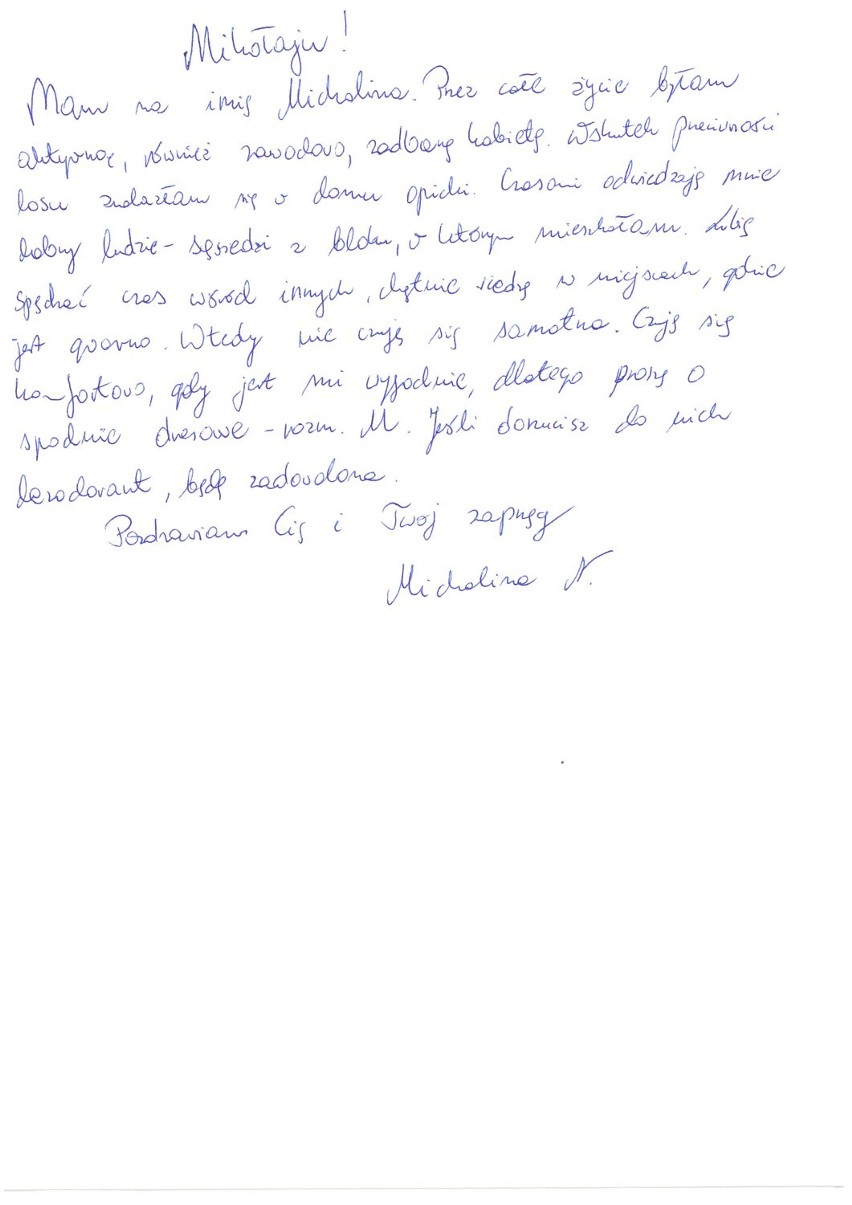 Mikołaju!
Mam na imię Michalina. Przez całe życie byłam
aktywną, również zawodowo, zadbaną kobietą. Wskutek przeciwności
losu znalazłam się w domu opieki. Czasami odwiedzają mnie
dobrzy ludzie - sąsiedzi z bloku, w którym mieszkałam. Lubię
spędzać czas wśród innych, chętnie siedzę w miejscach, gdzie
jest gwarno. Wtedy nie czuję się samotna. Czuję się
komfortowo, gdy jest mi wygodnie, dlatego proszę o
spodnie dresowe - rozm. M. Jeśli dorzucisz do nich
dezodorant, będę zadowolona.
Pozdrawiam Cię i Twój zaprzęg
Michalina N.